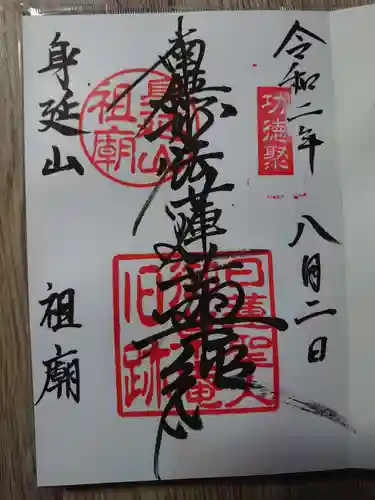 令和二年 八月二日
功徳聚
南無妙法蓮華経
身延山
祖廟
日蓮聖人
御草庵
旧跡
身延山 祖廟